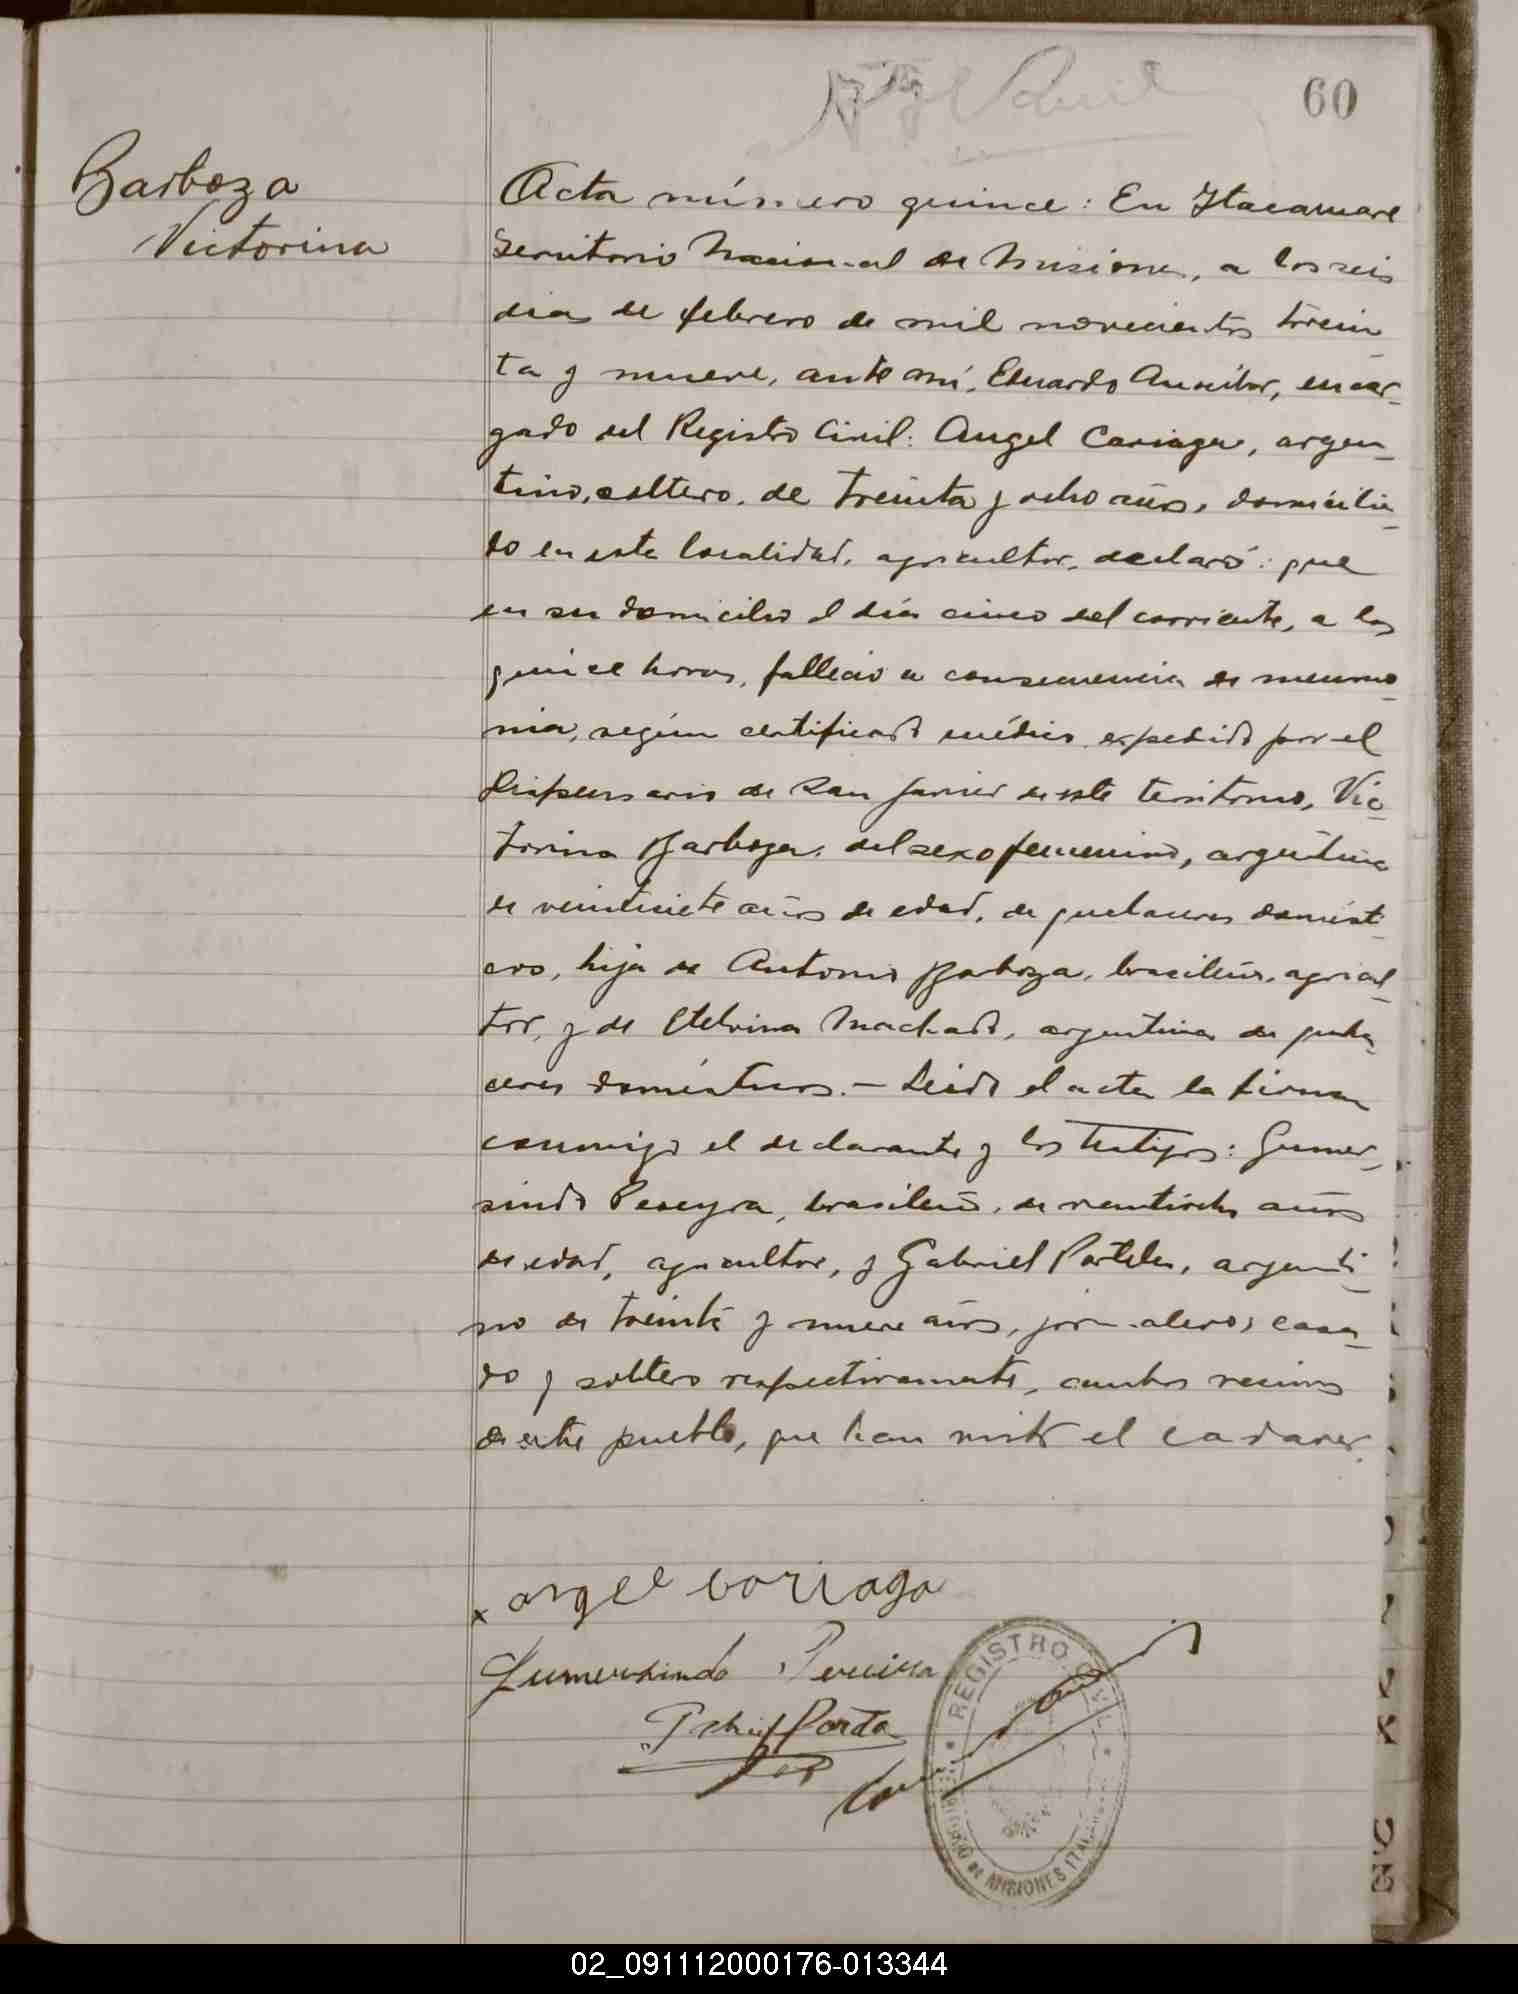 60
Barboza
Victorina
Acta número quince: En Itacaruaré
Territorio Nacional de Misiones, a los seis
dias de febrero de mil novecientos trein
ta y nueve, ante mí, Eduardo encar_
gado del Registro Civil: Angel Cariaga, argen_
tino, soltero, de treinta y ocho años, domicilia_
do en esta localidad, agricultor, declaró: que
en su domicilio el día cinco del corriente, a las
quince horas, falleció a consecuencia de neumo_
nia, según certificado médico expedido por el
Dispensario de San Javier de este territorio, Vic_
torina Barboza, del sexo femenino, argentina
de veintisiete años de edad, de quehaceres domést_
icos, hija de Antonio Barboza, brasileño, agricul_
tor, y de Etelvina Machado, argentina de queha_
ceres domésticos.- Leida el acta la firman
conmigo el declarante y los testigos: Gumer_
sindo Pereyra, brasileño, de veintiocho años
de edad, agricultor, y Gabriel Portela, argenti_
no de treinta y nueve años, jornalero, casa_
do y soltero respectivamente, ambos vecinos
de este pueblo, que han visto el cadaver.
x angel cariaga
Gumersindo Pereira
REGISTRO CIVIL
TERRITORIO DE MISIONES
02_091112000176-013344